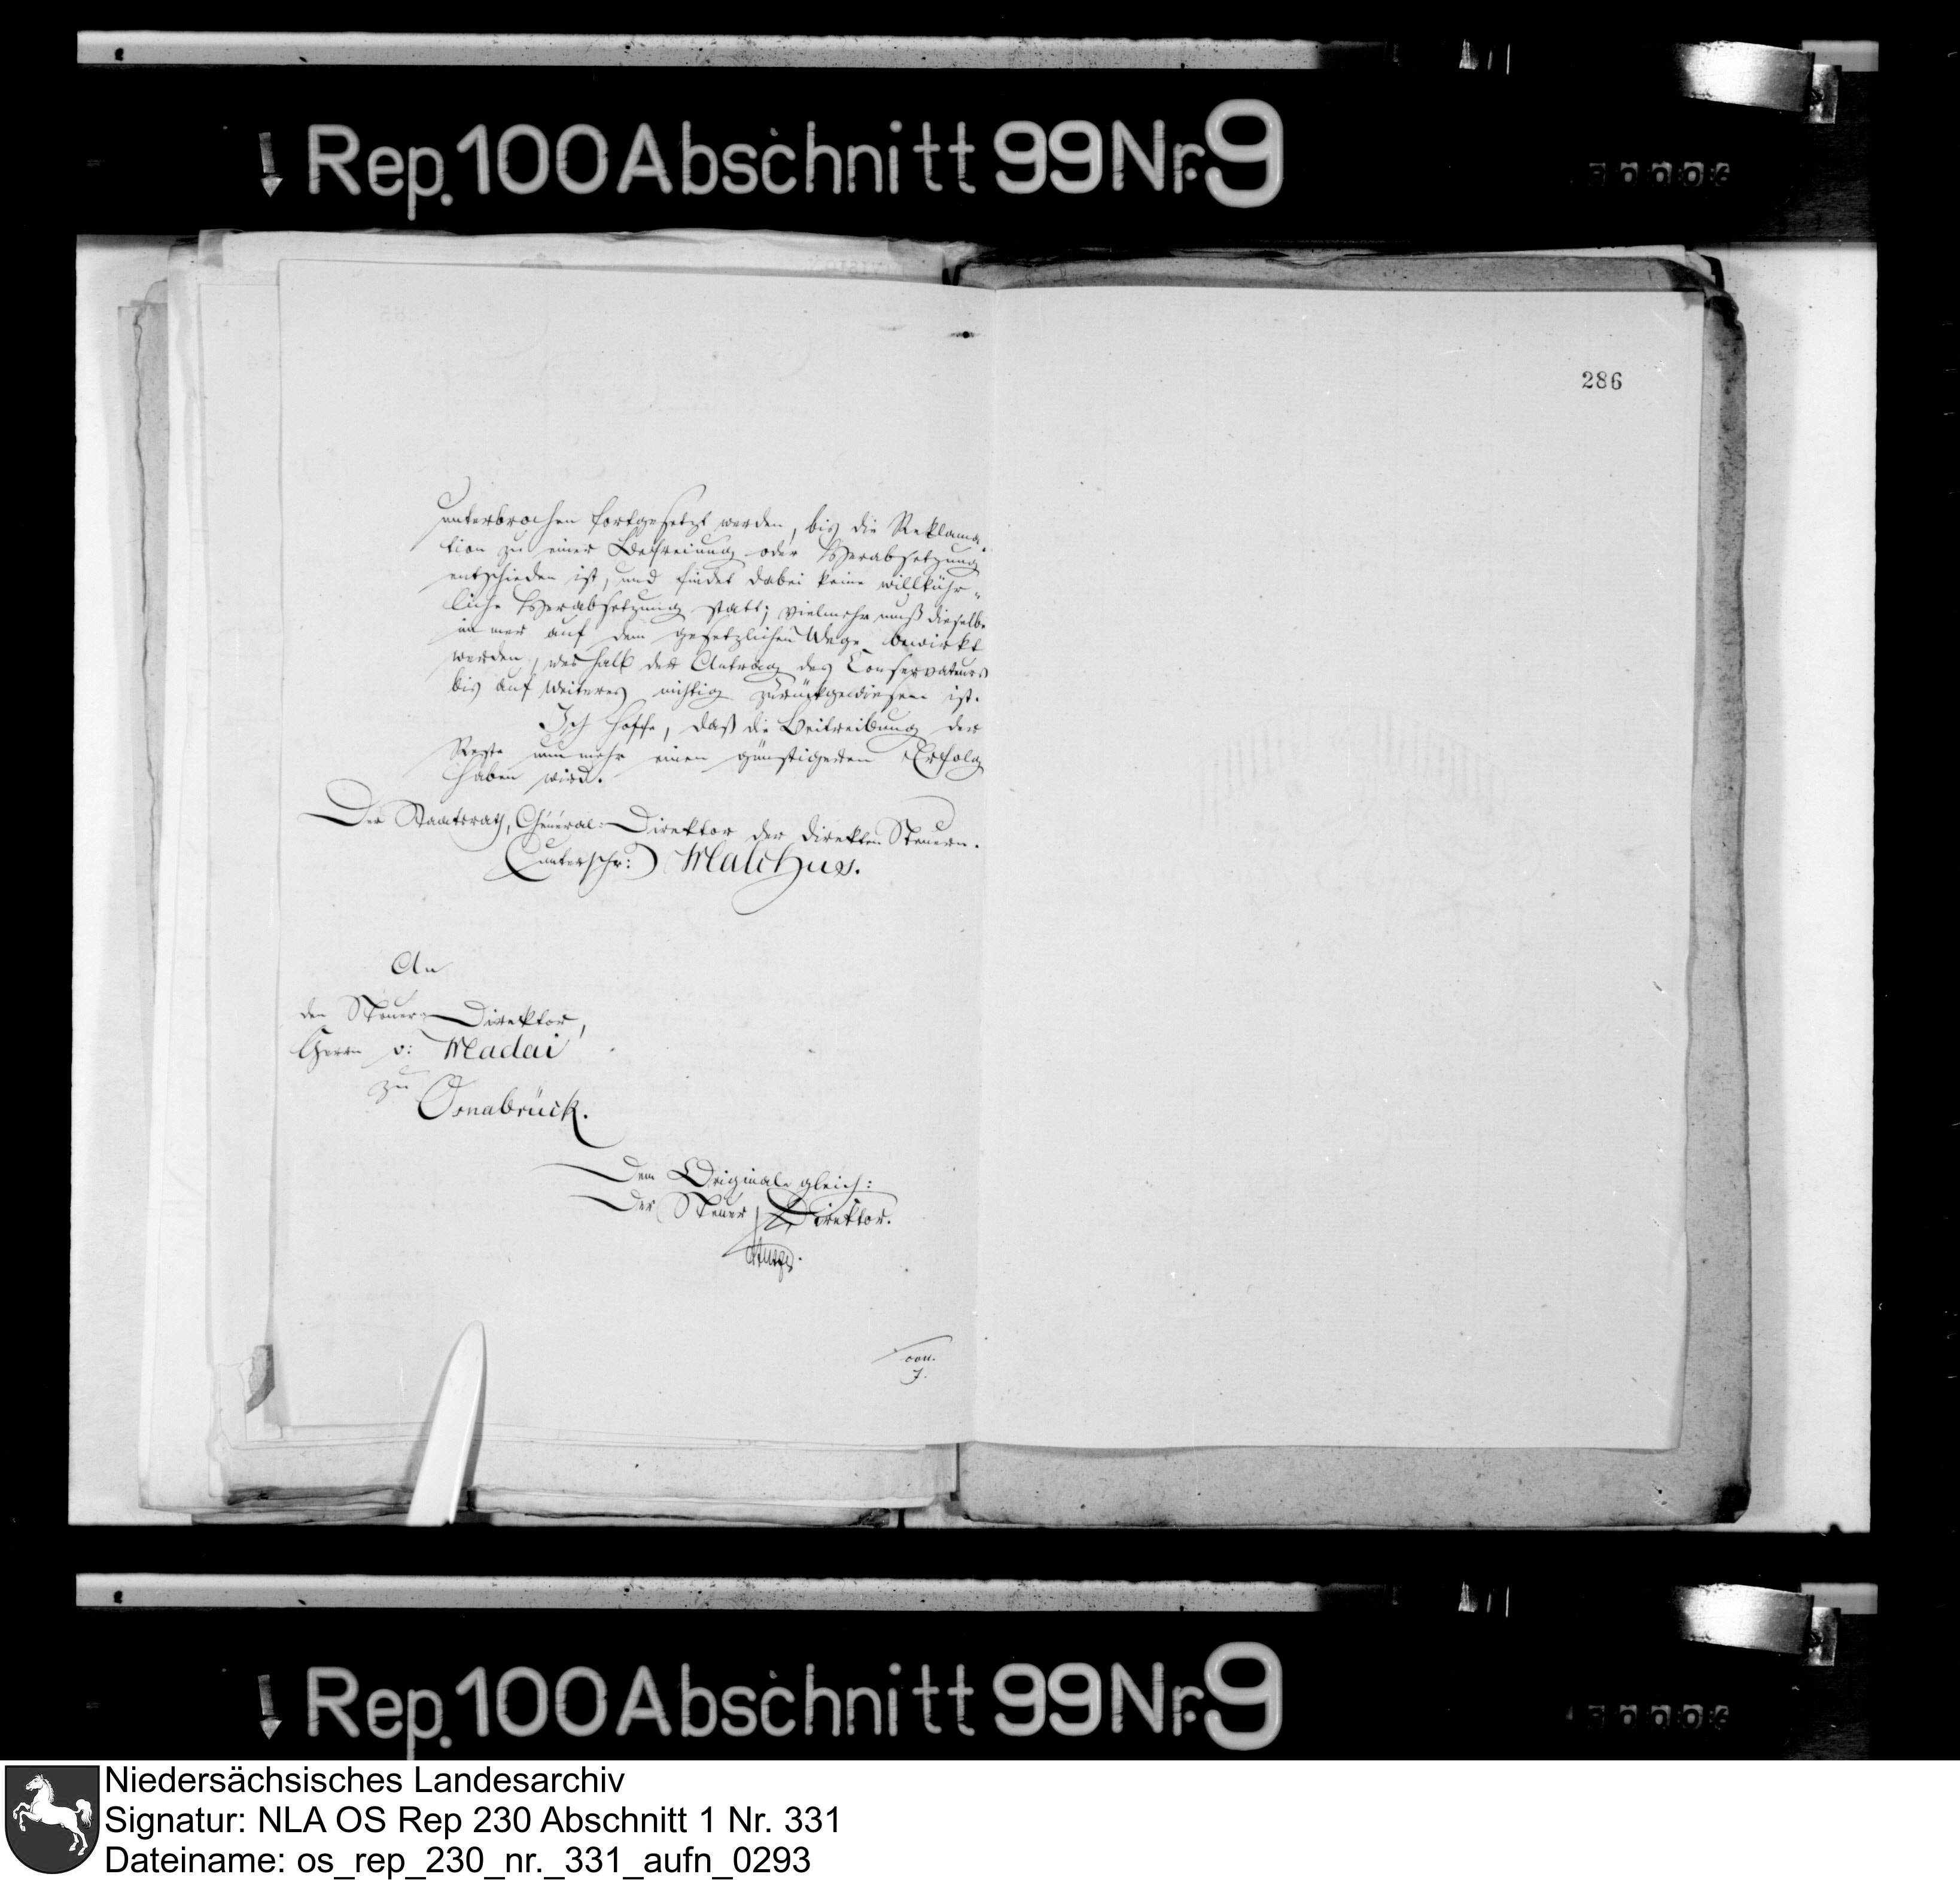 Rep. 100 Abschnitt 99 Nr. 9
286
unterbrochen fortgesetzt werden, bis die Reklama-
tion zu einer Befreiung oder Herabsetzung
entschieden ist, und findet dabei keine willkühr-
liche Herabsetzung statt; vielmehr muß dieselbe
immer auf dem gesetzlichen Wege bewirkt
werden, weshalb der Antrag des Conservateurs
bis auf Weiteres zurückgewiesen ist.
Ich hoffe, daß die Beitreibung der
Reste nunmehr einen günstigeren Erfolg
haben wird.
Der Staatsrath, General-Direktor der direkten Steuern.
(unterschr:) Malchus.
An
den Steuer-Direktor,
Herrn v: Madai
zu
Osnabrück.
Dem Originale gleich:
Der Steuer Direktor.
Rep. 100 Abschnitt 99 Nr. 9
Niedersächsisches Landesarchiv
Signatur: NLA OS Rep 230 Abschnitt 1 Nr. 331
Dateiname: os_rep_230_nr._331_aufn_0293